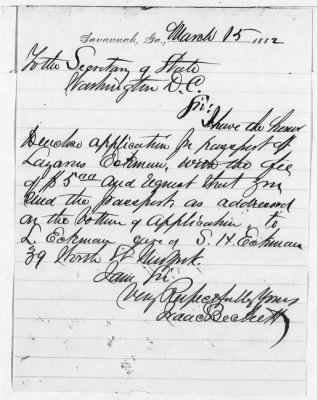 Savannah, Ga., March 15 1882
To the Secretary of State
Washington D.C.
Sir:
I have the honor
to enclose application for passport of
Lazarus Eckman, with the fee
of $5.00 and request that you
send the passport as addressed
on the bottom of application, to
L. Eckman care of S. H. Eckman
39 North St New York.
I am Sir
Very Respectfully Yours
Isaac Beckett